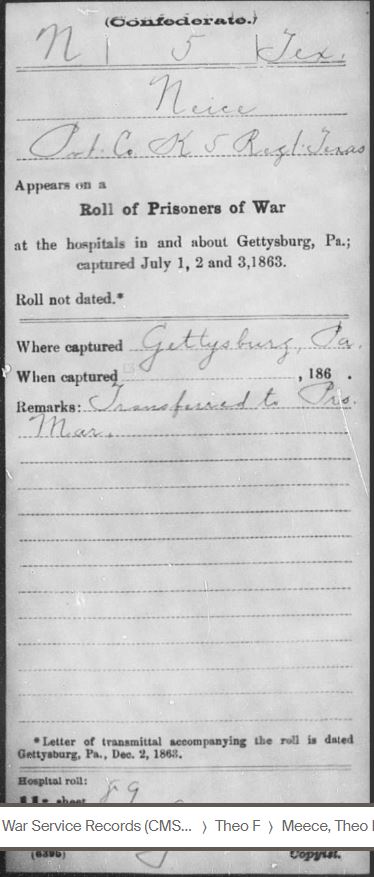 (Confederate.)
N | 5 | Tex.
Neice
Pvt. Co. K 5 Regt. Texas
Appears on a
Roll of Prisoners of War
at the hospitals in and about Gettysburg, Pa.;
captured July 1, 2 and 3, 1863.
Roll not dated.*
Where captured Gettysburg, Pa.
When captured , 186 .
Remarks: Transferred to Pro.
Mar.
*Letter of transmittal accompanying the roll is dated
Gettysburg, Pa., Dec. 2, 1863.
Hospital roll:
sheet 89
War Service Records (CMS... › Theo F › Meece, Theo
(639b) Copyist.